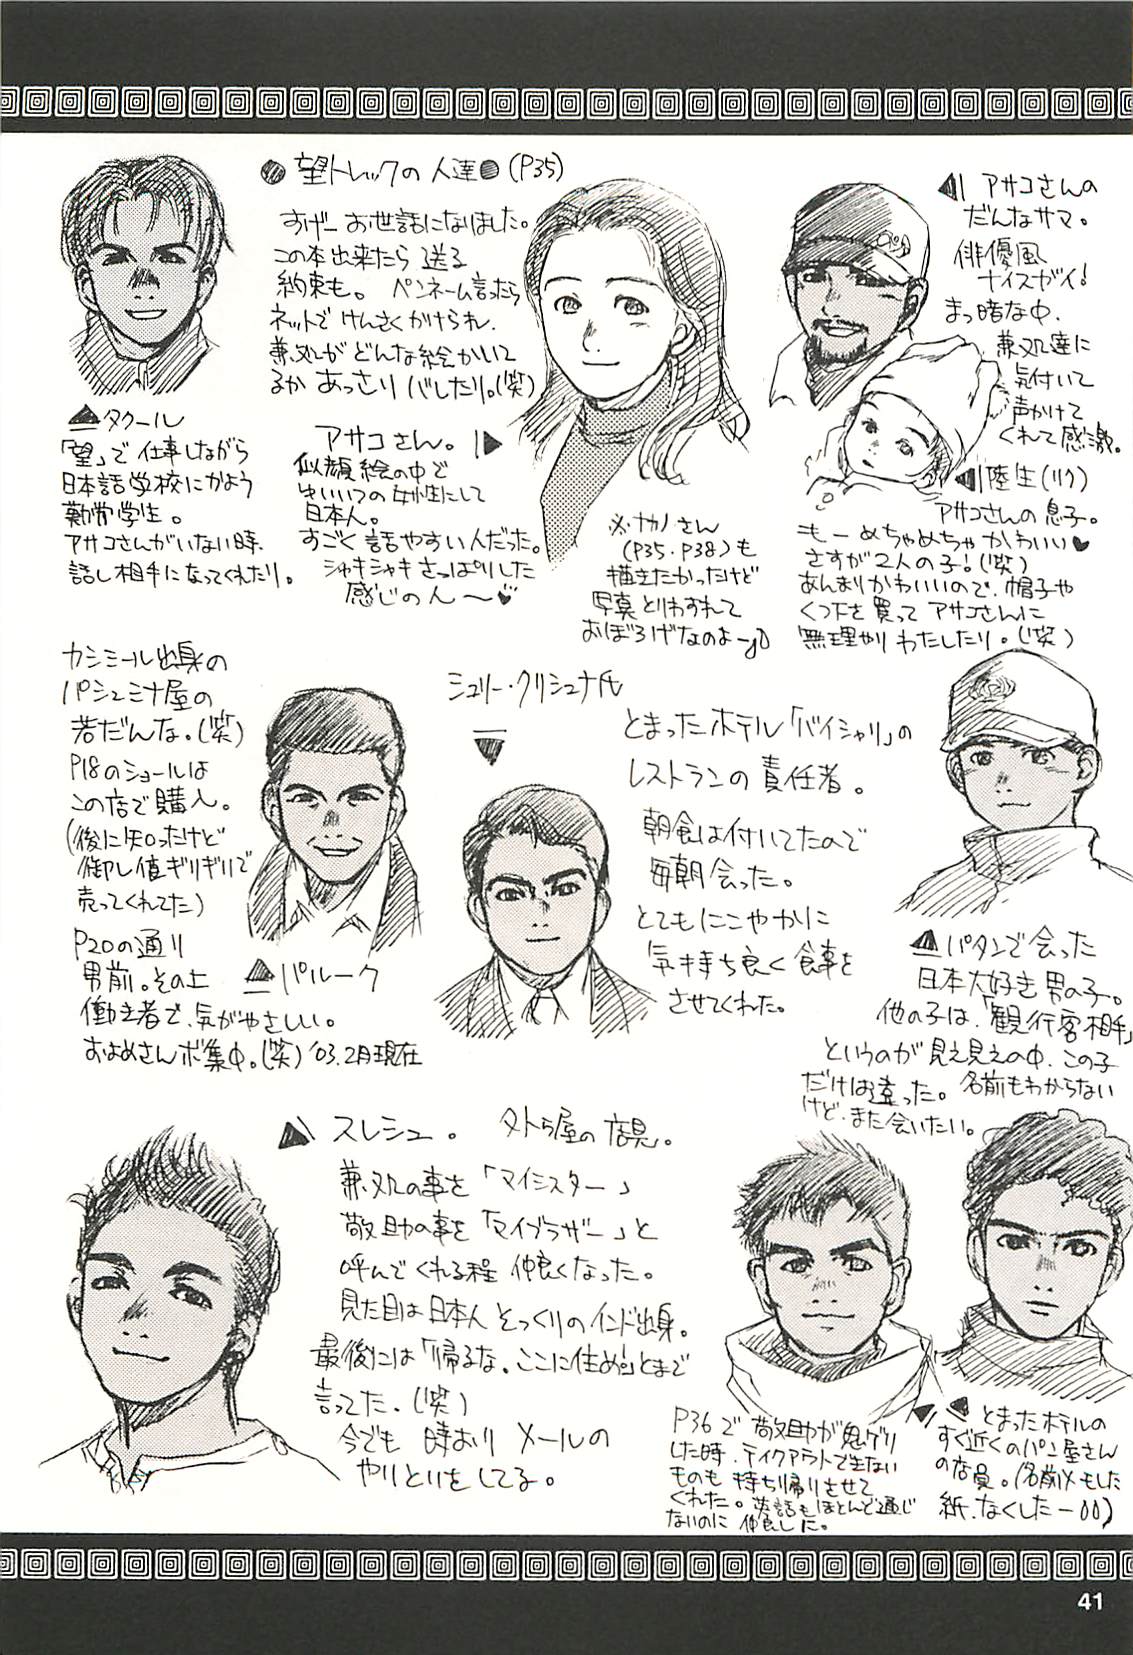 ●望トレックの人達●(P35)
すげーお世話になりました。
この本出来たら送る
約束も。ペンネーム言ったら
ネットでけんさくかけられ、
兼処がどんな絵かいて
るかあっさりバレたり。(笑)
▲タクール
「望」で仕事しながら
日本語学校にかよう
勤労学生。
アサコさんがいない時、
話し相手になってくれたり。
アサコさん。▶
似顔絵の中で
ゆいいつの女性にして
日本人。
すごく話やすい人だった。
シャキシャキさっぱりした
感じの人〜♥
◀アサコさんの
だんなサマ。
俳優風
ナイスガイ!
まっ暗な中、
兼処達に
気付いて
声かけて
くれて感激。
◀陸生(リク)
アサコさんの息子。
もーめちゃめちゃかわいい♥
さすが2人の子!(笑)
あんまりかわいいので、帽子や
くつ下を買ってアサコさんに
無理やりわたしたり。(笑)
※ナカノさん
(P35、P38)も
描きたかったけど
写真とりわすれて
おぼろげなのよー
カシミール出身の
パシュミナ屋の
若だんな。(笑)
P18のショールは
この店で購入。
(後に知ったけど
卸し値ギリギリで
売ってくれてた)
P20の通り
男前。その上
働き者で、気がやさしい。
およめさんボ集中。(笑)'03.2月現在
▲パルーク
シュリー・クリシュナ氏
▼
とまったホテル「バイシャリ」の
レストランの責任者。
朝食は付いてたので
毎朝会った。
とてもにこやかに
気持ち良く食事を
させてくれた。
▲パタンで会った
日本大好き男の子。
他の子は、「観行客相手」
というのが見え見えの中、この子
だけは違った。名前もわからない
けど、また会いたい。
▲スレシュ。タトゥ屋の店員。
兼処の事を「マイシスター」
敬助の事を「マイブラザー」と
呼んでくれる程仲良くなった。
見た目は日本人そっくりのインド出身。
最後には「帰るな。ここに住め」とまで
言ってた。(笑)
今でも時おりメールの
やりとりをしてる。
P36で敬助が鬼ゲリ
した時、テイクアウトできない
ものも持ち帰りさせて
くれた。英語もほとんど通じ
ないのに仲良しに。
▲とまったホテルの
すぐ近くのパン屋さん
の店員。(名前メモした
紙、なくしたー
41